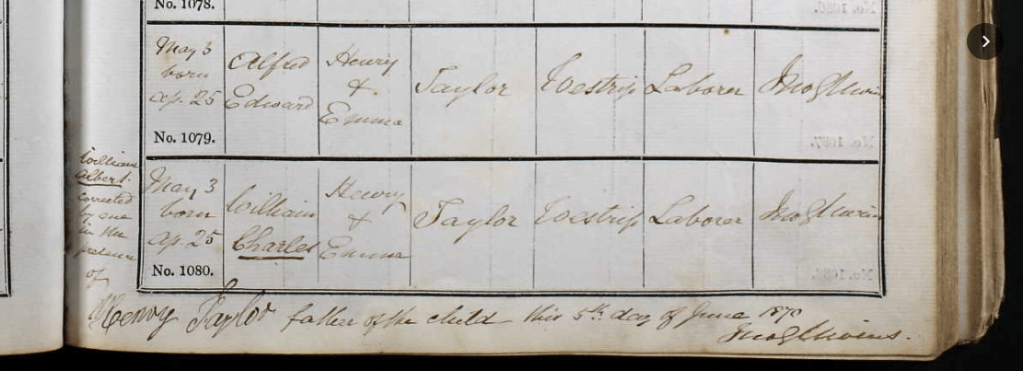 No. 1078.
May 3
born
Ap. 25
Alfred
Edward
Henry
&
Emma
Taylor
Westrip
Laborer
No. 1079.
William
Albert.
corrected
by me
in the
presence
of
May 3
born
Ap. 25
William
Charles
Henry
&
Emma
Taylor
Westrip
Laborer
No. 1080.
Henry Taylor father of the child this 5th day of June 1870